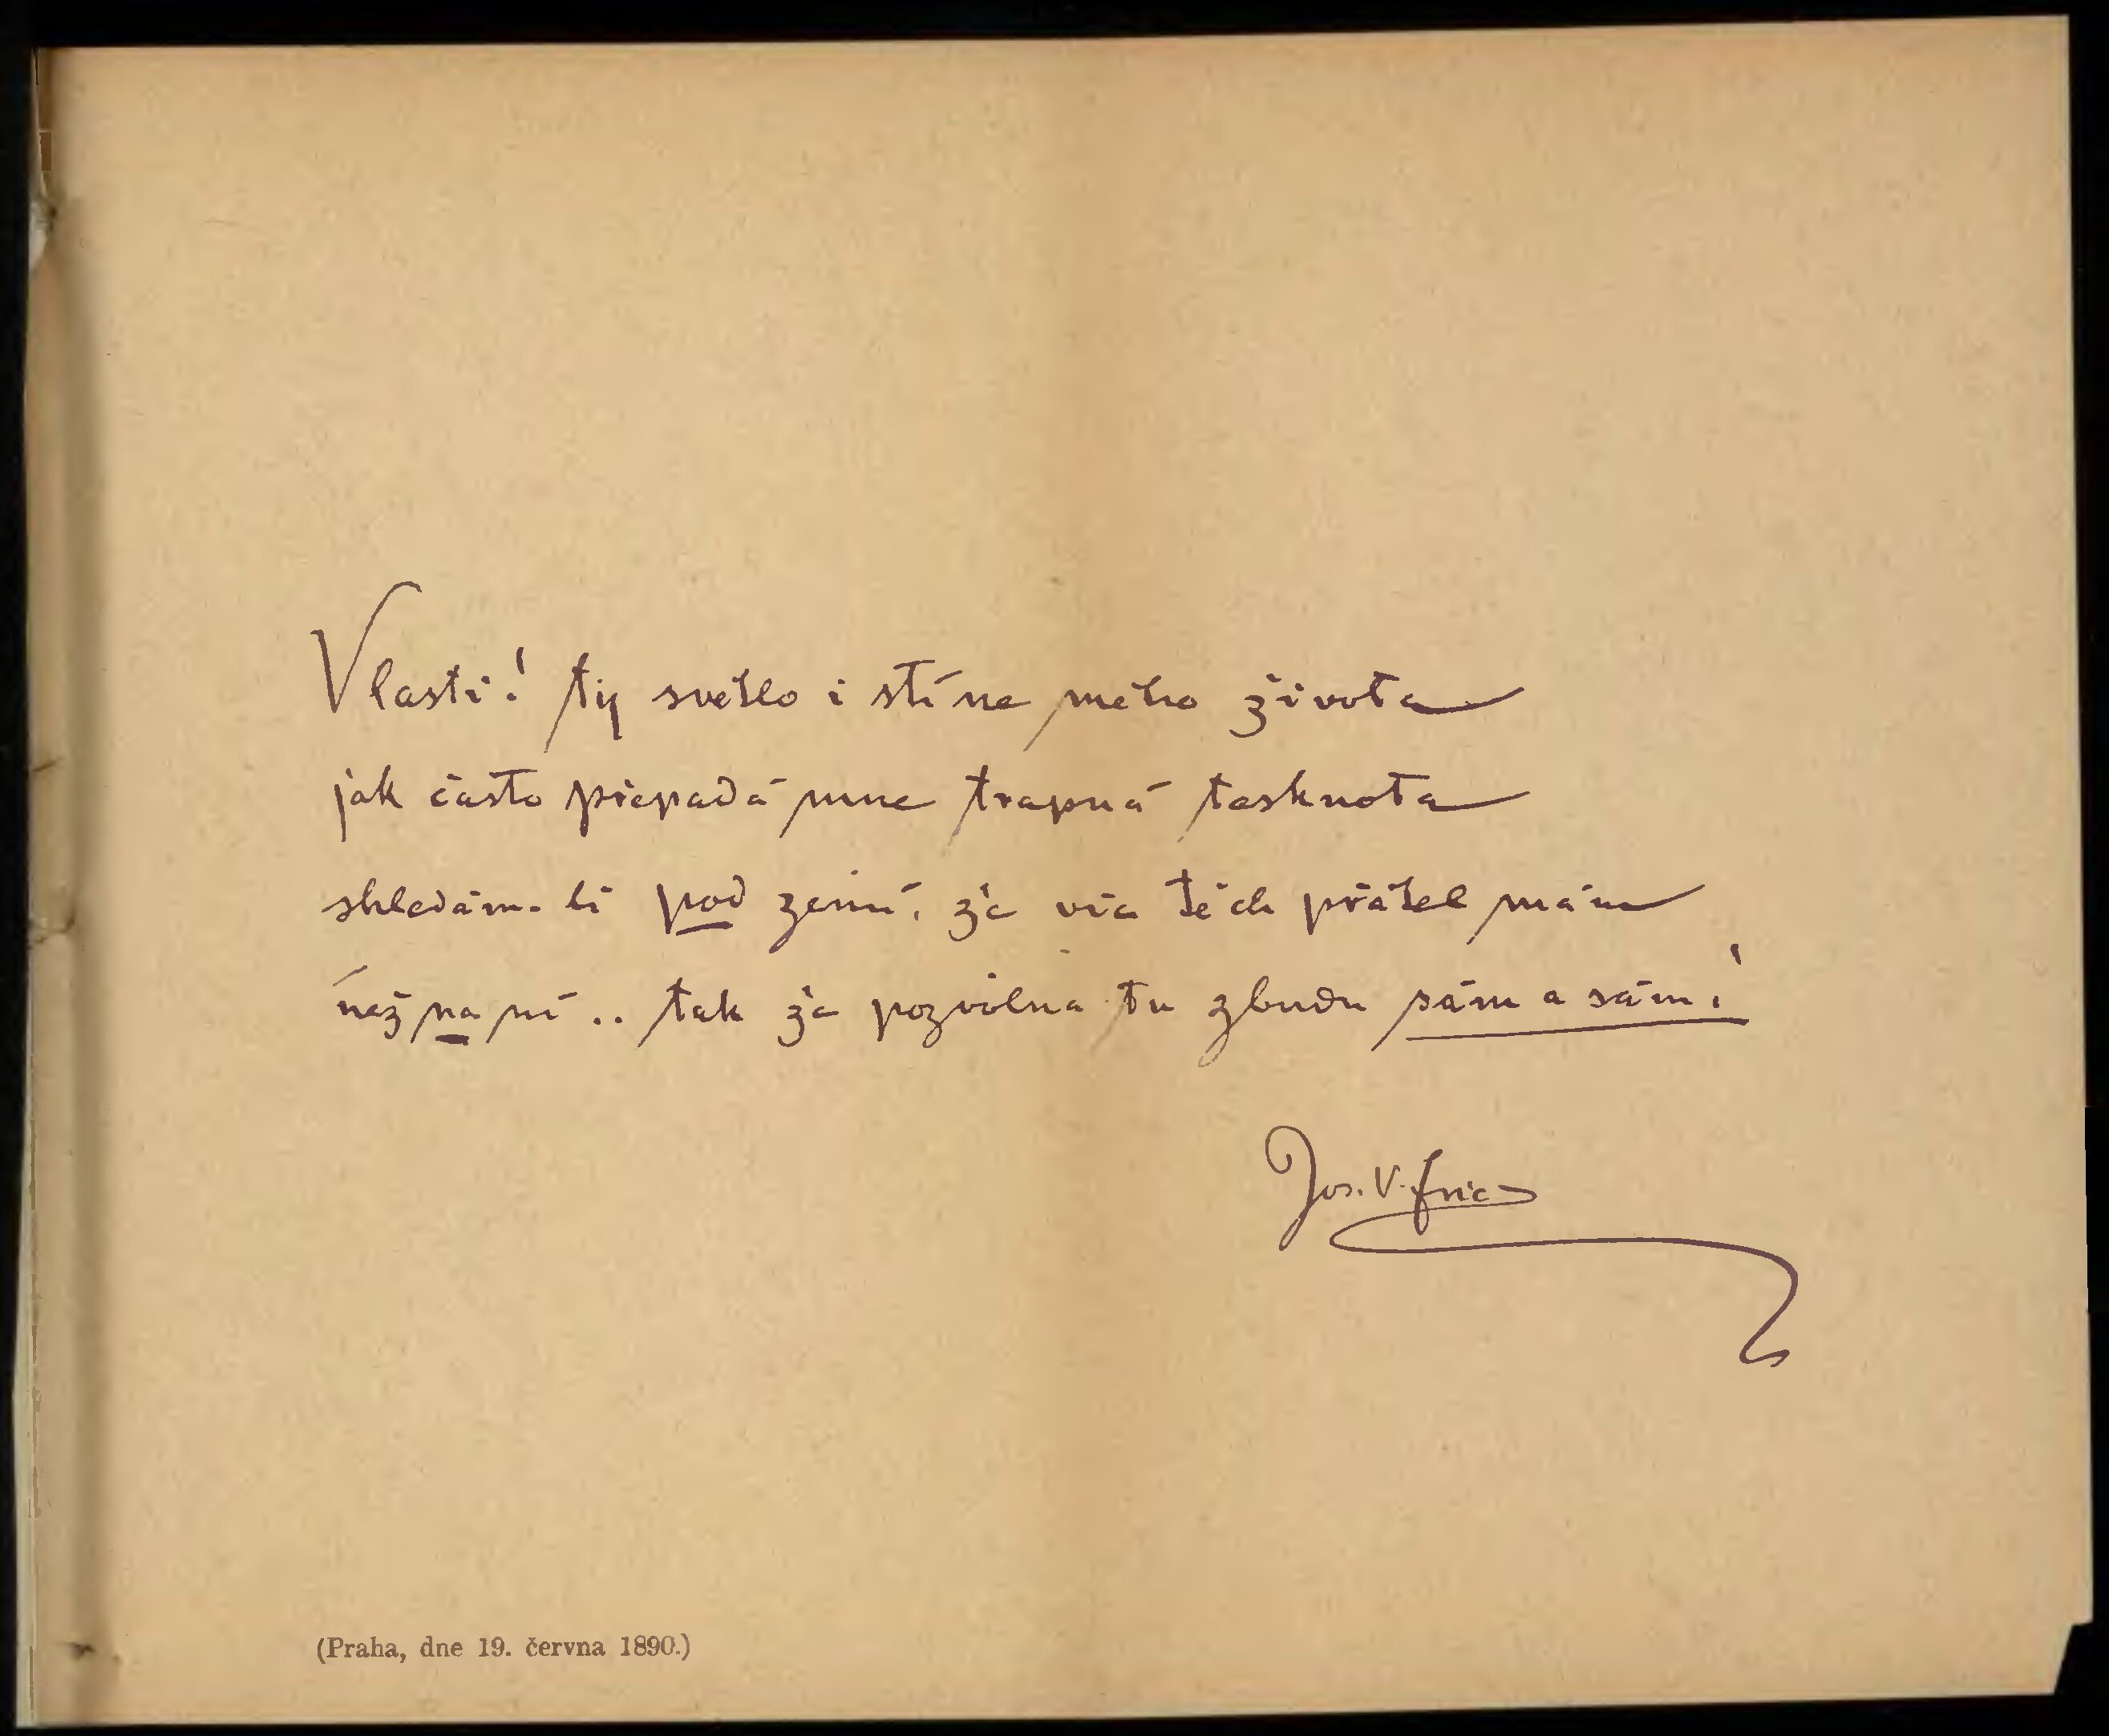 Vlasti! ty světlo i stíne mého života
jak často přepadá mne trapná tesknota
shledám-li pod zemí, že víc těch přátel mám
než na ní .. tak že pozvolna tu zbudu sám a sám!
Jos. V. Fric
(Praha, dne 19. června 1890.)